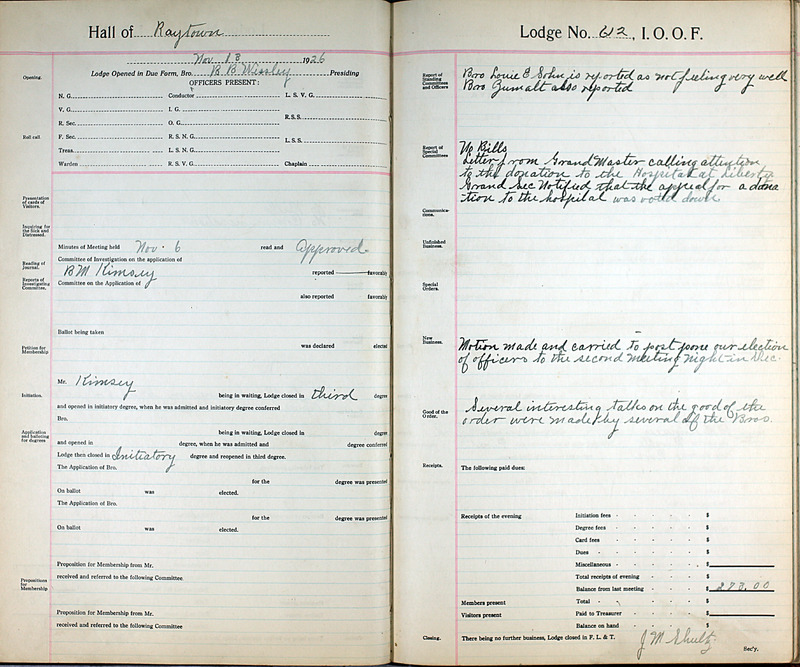 Hall of Raytown
Nov 13 1926
Lodge Opened in Due Form, Bro. B. B. Presiding
OFFICERS PRESENT:
Opening.
N. G. Conductor L. S. V. G.
V. G. I. G.
R. S. S.
R. Sec. O. G.
Roll call.
F. Sec. R. S. N. G.
L. S. S.
Treas. L. S. N. G.
Warden R. S. V. G. Chaplain
Presentation of cards of Visitors.
Inquiring for the Sick and Distressed.
Minutes of Meeting held Nov. 6 read and Approved
Reading of Journal.
Committee of Investigation on the application of
B M Kimsey reported favorably
Reports of Investigating Committee.
Committee on the Application of
also reported favorably
Ballot being taken
Petition for Membership
was declared elected
Mr. Kimsey
Initiation.
being in waiting, Lodge closed in third degree
and opened in initiatory degree, when he was admitted and initiatory degree conferred
Bro.
Application and balloting for degrees
being in waiting, Lodge closed in degree
and opened in degree, when he was admitted and degree conferred
Lodge then closed in Initiatory degree and reopened in third degree.
The Application of Bro.
for the degree was presented
On ballot was elected.
The Application of Bro.
for the degree was presented
On ballot was elected.
Proposition for Membership from Mr.
Propositions for Membership
received and referred to the following Committee
Proposition for Membership from Mr.
received and referred to the following Committee
Lodge No. 612, I. O. O. F.
Report of Standing Committees and Officers
Bro Louie B Sohn is reported as not feeling very well
Bro Zumalt also reported
Report of Special Committees
No Bills
Letter from Grand Master calling attention
to the donation to the Hospital at Liberty
Grand Sec Notified that the appeal for a dona
tion to the hospital was voted down
Communications.
Unfinished Business.
Special Orders.
New Business.
Motion made and carried to post pone our election
of officers to the second meeting night in Dec.
Good of the Order.
Several interesting talks on the good of the
order were made by several of the Bros.
Receipts.
The following paid dues:
Receipts of the evening Initiation fees $
Degree fees $
Card fees $
Dues $
Miscellaneous $
Total receipts of evening $
Balance from last meeting $ 273.00
Members present Total $
Visitors present Paid to Treasurer $
Balance on hand $
Closing.
There being no further business, Lodge closed in F. L. & T. J M Shultz
Sec'y.